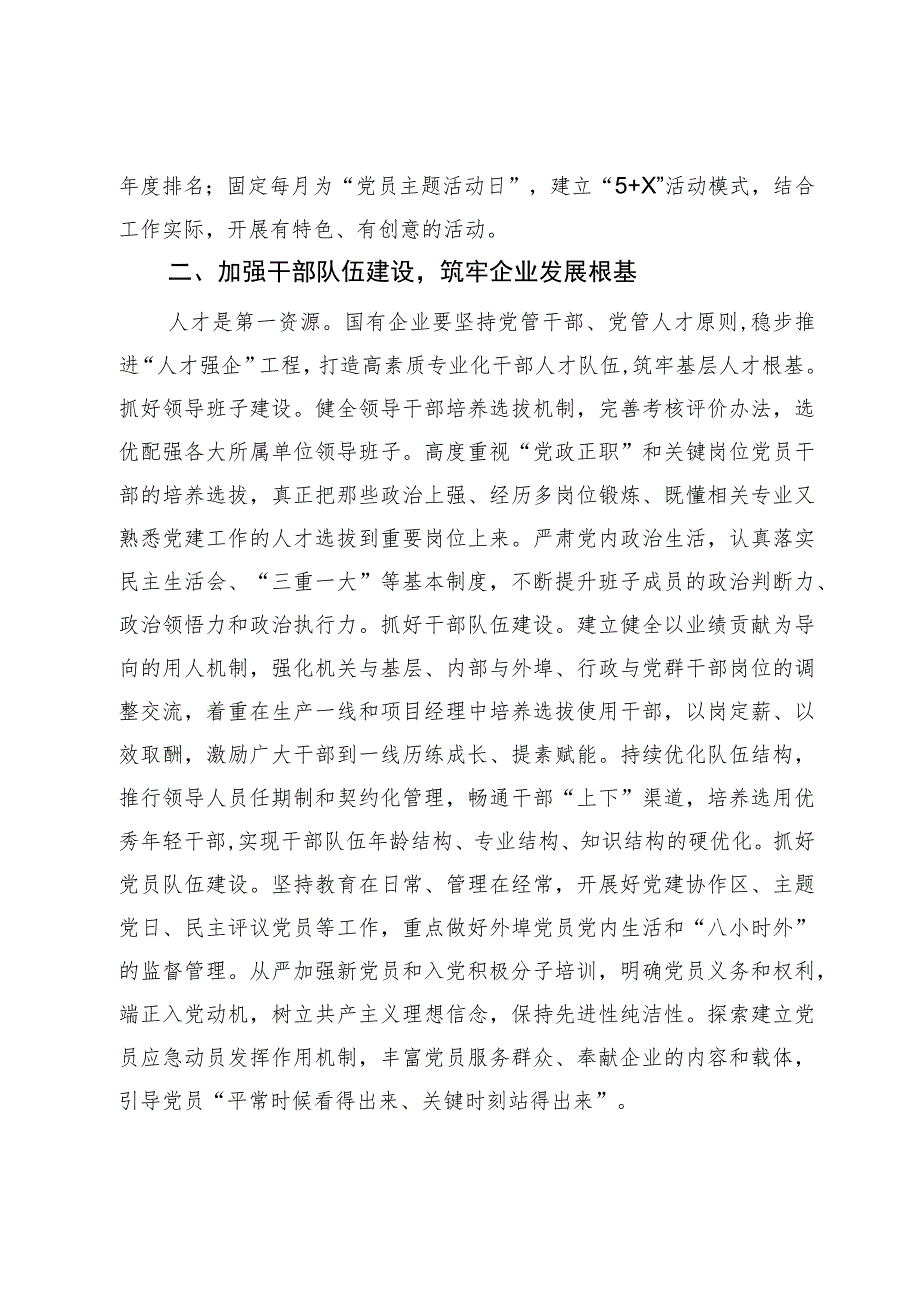 年度排名；固定每月为“党员主题活动日”，建立“5+X”活动模式，结合
工作实际，开展有特色、有创意的活动。
二、加强干部队伍建设，筑牢企业发展根基
人才是第一资源。国有企业要坚持党管干部、党管人才原则,稳步推
进“人才强企”工程,打造高素质专业化干部人才队伍,筑牢基层人才根基。
抓好领导班子建设。健全领导干部培养选拔机制，完善考核评价办法，选
优配强各大所属单位领导班子。高度重视“党政正职”和关键岗位党员干
部的培养选拔，真正把那些政治上强、经历多岗位锻炼、既懂相关专业又
熟悉党建工作的人才选拔到重要岗位上来。严肃党内政治生活，认真落实
民主生活会、“三重一大”等基本制度，不断提升班子成员的政治判断力、
政治领悟力和政治执行力。抓好干部队伍建设。建立健全以业绩贡献为导
向的用人机制，强化机关与基层、内部与外埠、行政与党群干部岗位的调
整交流，着重在生产一线和项目经理中培养选拔使用干部，以岗定薪、以
效取酬，激励广大干部到一线历练成长、提素赋能。持续优化队伍结构，
推行领导人员任期制和契约化管理，畅通干部“上下”渠道，培养选用优
秀年轻干部,实现干部队伍年龄结构、专业结构、知识结构的硬优化。抓好
党员队伍建设。坚持教育在日常、管理在经常，开展好党建协作区、主题
党日、民主评议党员等工作，重点做好外埠党员党内生活和“八小时外”
的监督管理。从严加强新党员和入党积极分子培训，明确党员义务和权利，
端正入党动机，树立共产主义理想信念，保持先进性纯洁性。探索建立党
员应急动员发挥作用机制，丰富党员服务群众、奉献企业的内容和载体，
引导党员“平常时候看得出来、关键时刻站得出来”。